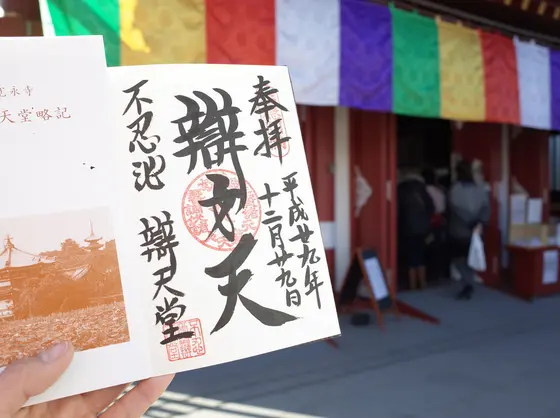 奉拝
平成廿九年
十二月廿九日
辯才天
不忍池
辯天堂
寛永寺
天堂略記